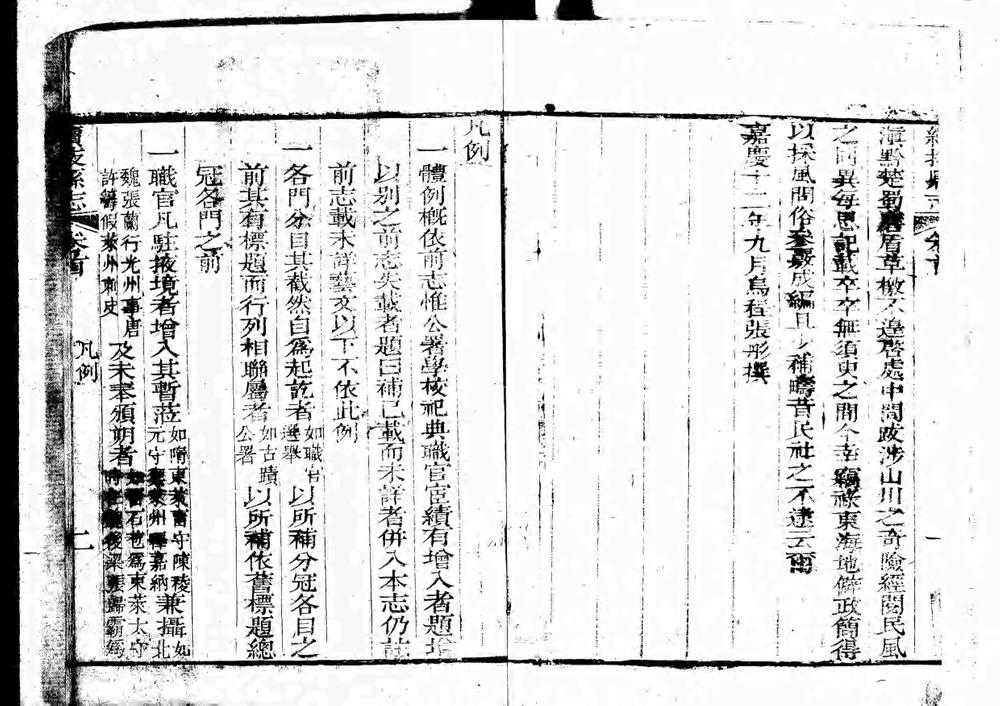 續掖縣志 卷首 一
滇黔楚蜀磨盾草檄不遑啓處中間跋涉山川之奇險經閱民風
之同異每思記載卒卒無須臾之閒今幸竊祿東海地僻政簡得
以採風問俗成編且少補疇昔民社之不逮云爾
嘉慶十二年九月烏程張彤撰
凡例
一體例槪依前志惟公署學校祀典職官宦績有增入者題增
以别之前志失載者題曰補已載而未詳者併入本志仍註
前志載未詳藝文以下不依此例
一各門分目其截然自爲起訖者如職官選舉以所補分冠各目之
前其有標題而行列相聯屬者如古蹟公署以所補依舊標題總
冠各門之前
一職官凡駐掖境者增入其暫蒞如隋東萊書守陳稜元守萊州釋嘉納兼攝如北
魏張蘭行光州事唐許籌假萊州刺史及未奉頒朔者如晉石苞爲東萊太守後梁張歸霸爲
續掖縣志 卷首 凡例 二